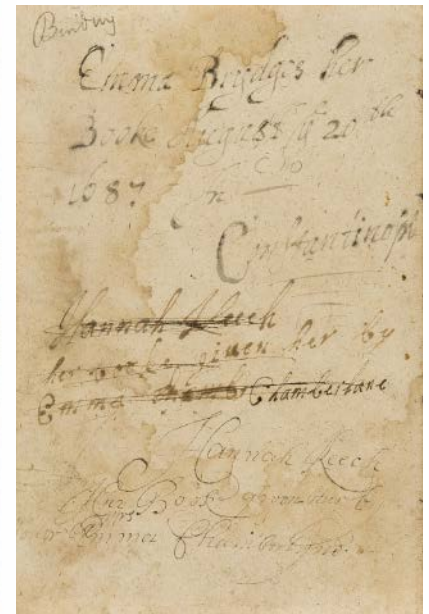 Binding
Emma Brydges her
Booke August ye 20th
1687 In
Constantinopl
Hannah Leech
her booke given her by
Emma Chamb Chamberlane
Hannah Leech
Her Booke given her by
Mrs
Emma Chamberlane